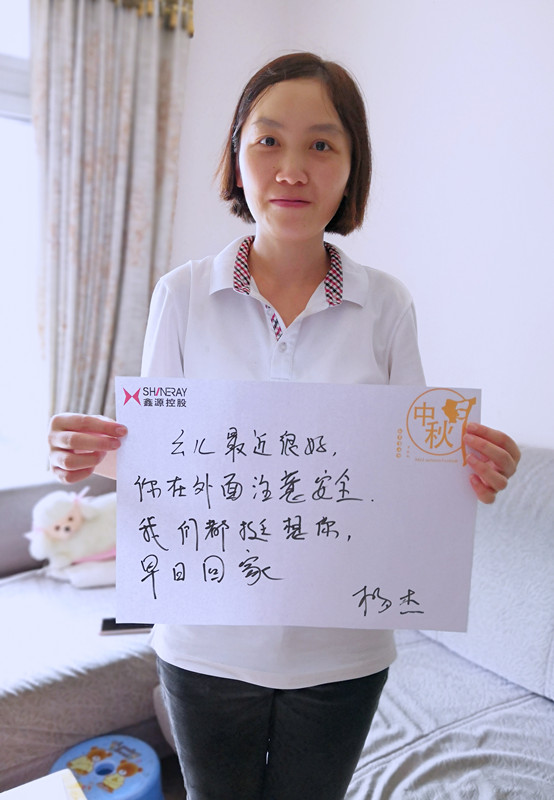 SHINERAY
鑫源控股
中秋月
幺儿最近很好,
你在外面注意安全.
我们都挺想你,
早日回家
杨杰